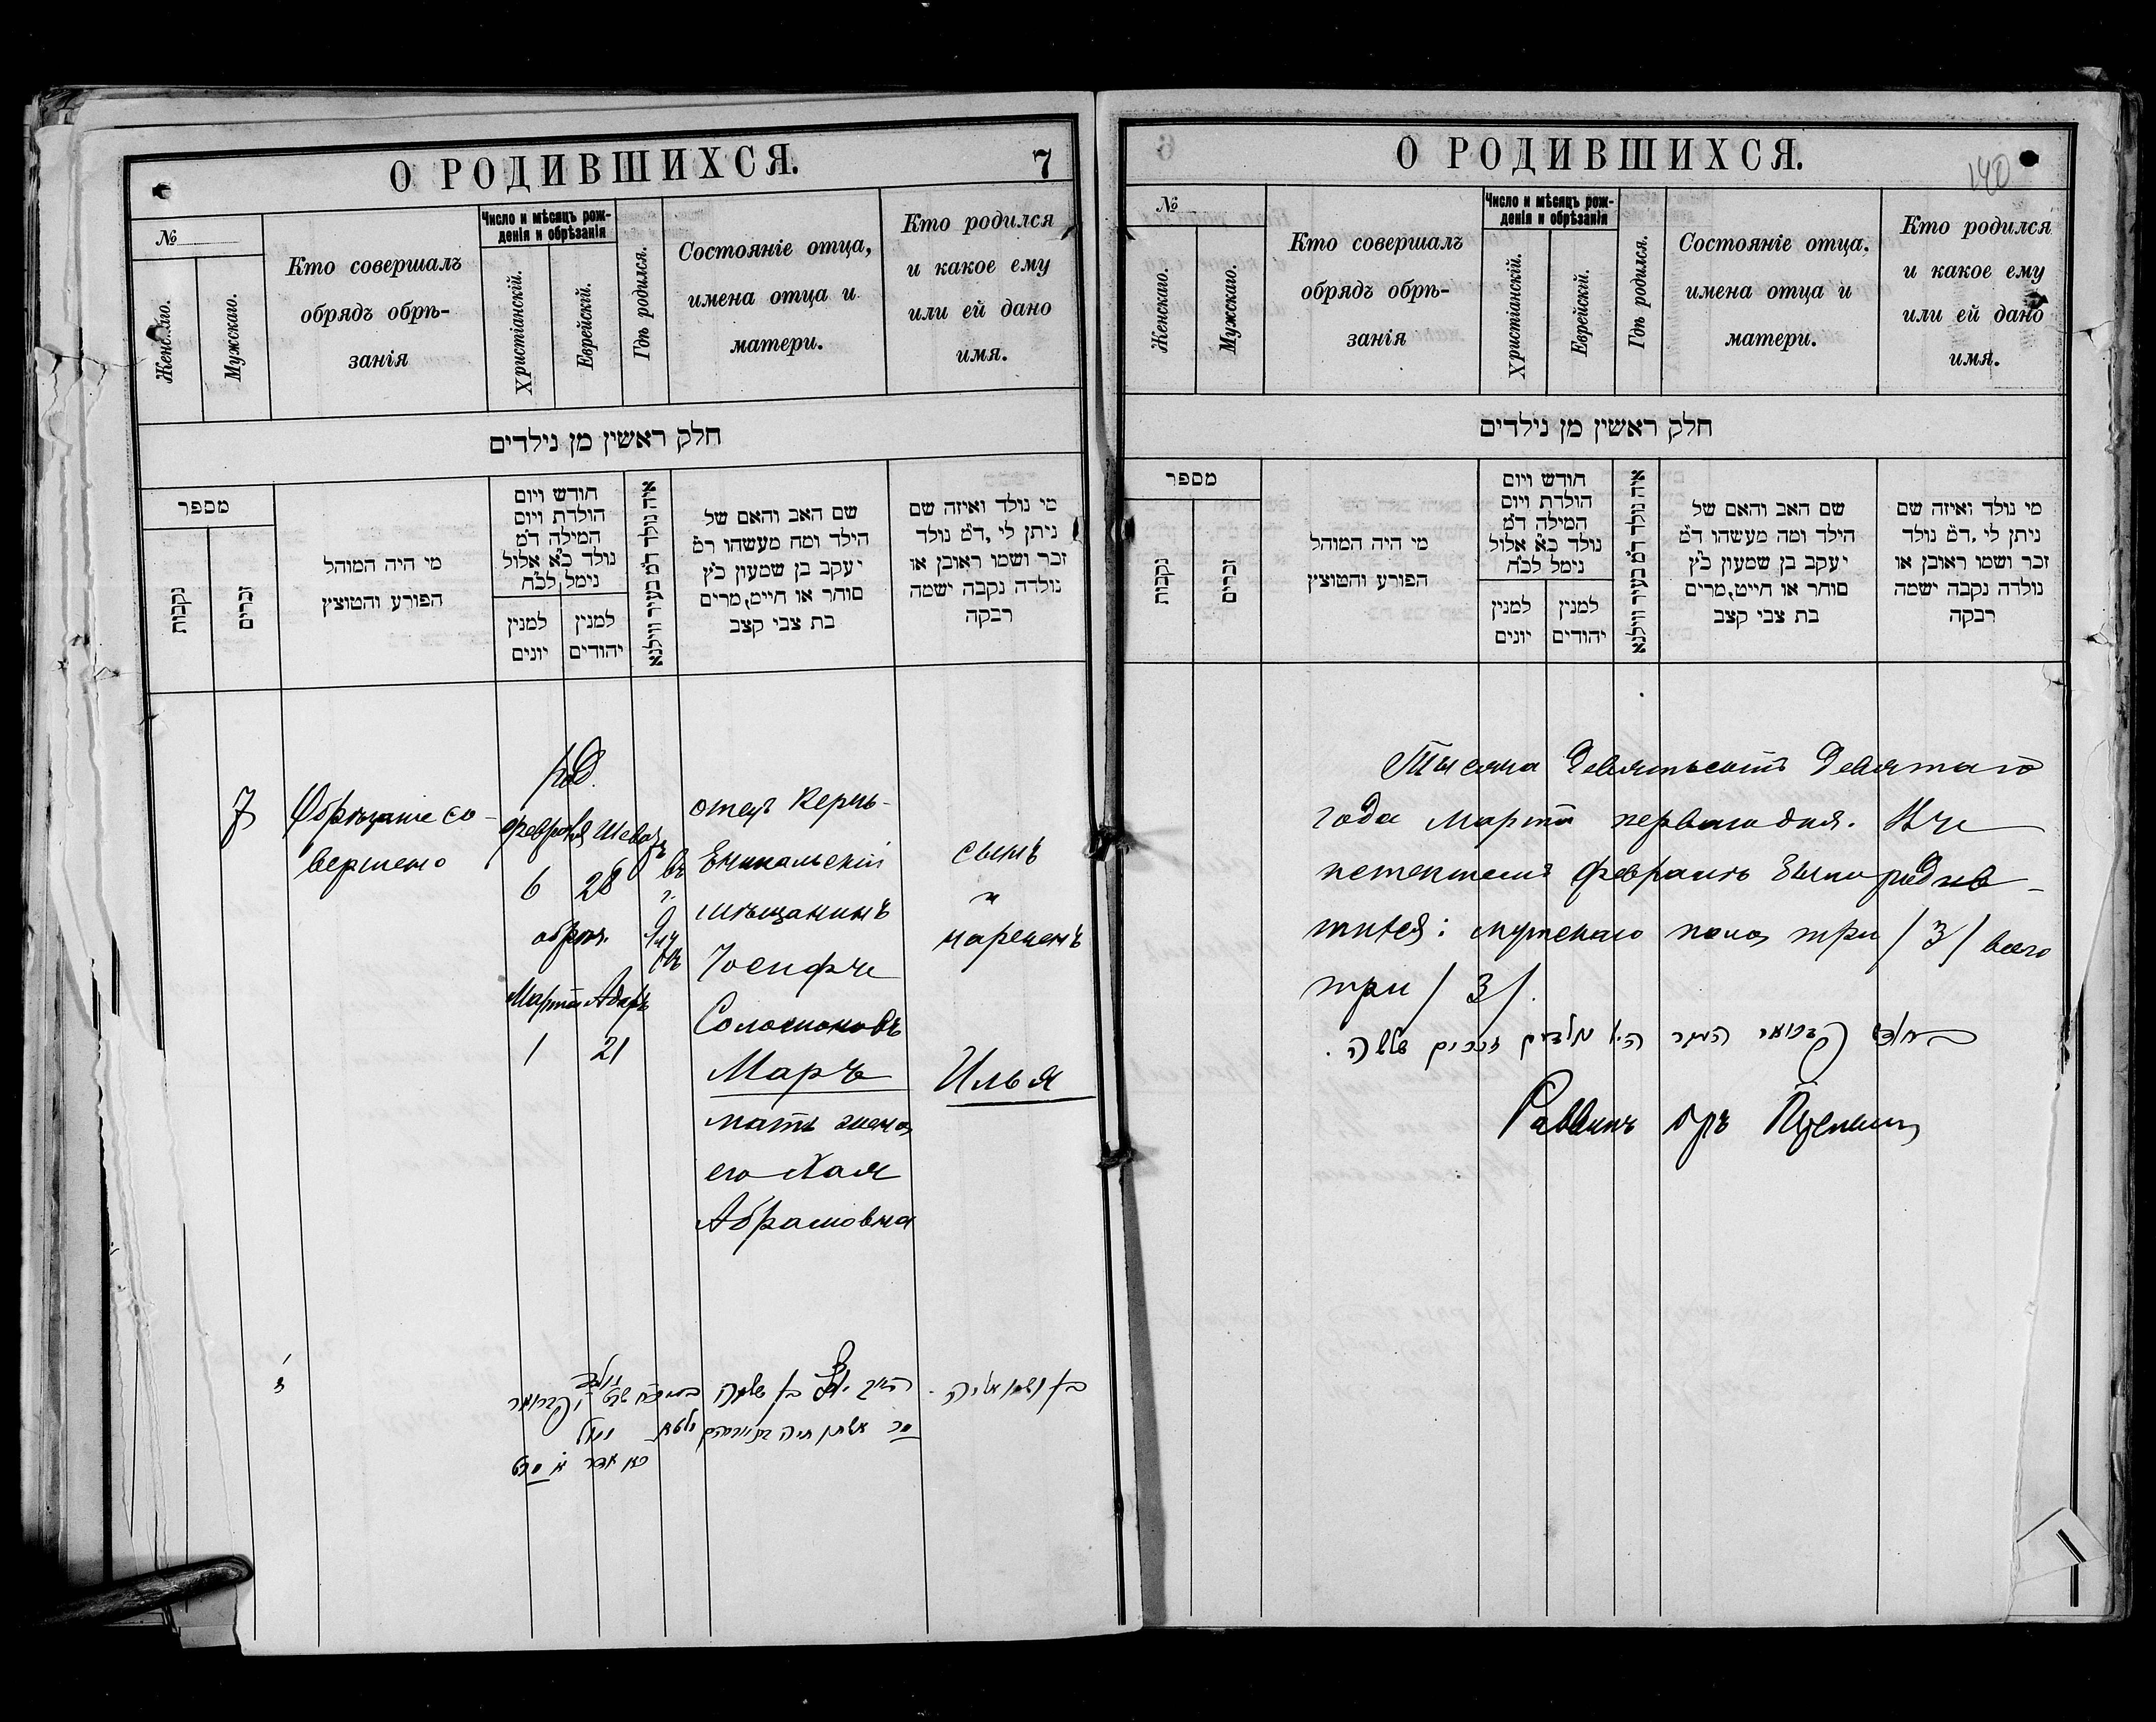 О РОДИВШИХСЯ.
7
№
Женскаго.
Мужскаго.
Кто совершалъ
обрядъ обрѣ-
занія
Число и мѣсяцъ рож-
денія и обрѣзанія
Христіанскій.
Еврейскій.
Гдѣ родился.
Состояніе отца,
имена отца и
матери.
Кто родился
и какое ему
или ей дано
имя.
חלק ראשין מן נילדים
מספר
נקבות
זכרים
מי היה המוהל
הפורע והטוצץ
חודש ויום
הולדת ויום
המילה ד״מ
נולד כ״א אלול
נימל לכ״ח
למנין
יונים
למנין
יהודים
איה נולד ד״מ בעיר ווילנא
שם האב והאם של
הילד ומה מעשהו ר״מ
יעקב בן שמעון כ״ץ
סוחר או חייט, מרים
בת צבי קצב
מי נולד ואיזה שם
ניתן לי, ד״מ נולד
זכר ושמו ראובן או
נולדה נקבה ישמה
רבקה
7
Обрѣзаніе со-
вершено
род.
февраля Шеватъ
6 28
обрѣз.
Марта Адаръ
1 21
въ
г.
отецъ Керчь-
Еникальскій
мѣщанинъ
Іосифъ
Соломоновъ
Маръ
мать жена
его Хая
Абрамовна
сынъ
и
нареченъ
Илья
בן ושמו אליה.
בן שלמה
מר אשתו חיה
נימל
כא אדר
О РОДИВШИХСЯ.
140
№
Женскаго.
Мужскаго.
Кто совершалъ
обрядъ обрѣ-
занія
Число и мѣсяцъ рож-
денія и обрѣзанія
Христіанскій.
Еврейскій.
Гдѣ родился.
Состояніе отца,
имена отца и
матери.
Кто родился
и какое ему
или ей дано
имя.
חלק ראשין מן נילדים
מספר
נקבות
זכרים
מי היה המוהל
הפורע והטוצץ
חודש ויום
הולדת ויום
המילה ד״מ
נולד כ״א אלול
נימל לכ״ח
למנין
יונים
למנין
יהודים
איה נולד ד״מ בעיר ווילנא
שם האב והאם של
הילד ומה מעשהו ד״מ
יעקב בן שמעון כ״ץ
סוחר או חייט, מרים
בת צבי קצב
מי נולד ואיזה שם
ניתן לי, ד״מ נולד
זכר ושמו ראובן או
נולדה נקבה ישמה
רבקה
Тысяча девятьсотъ девятаго
года марта перваго дня. Въ
истекшемъ февралѣ было родив-
шихся: мужскаго пола три /3/ всего
три /3/.
זכרים שלשה.
Раввинъ